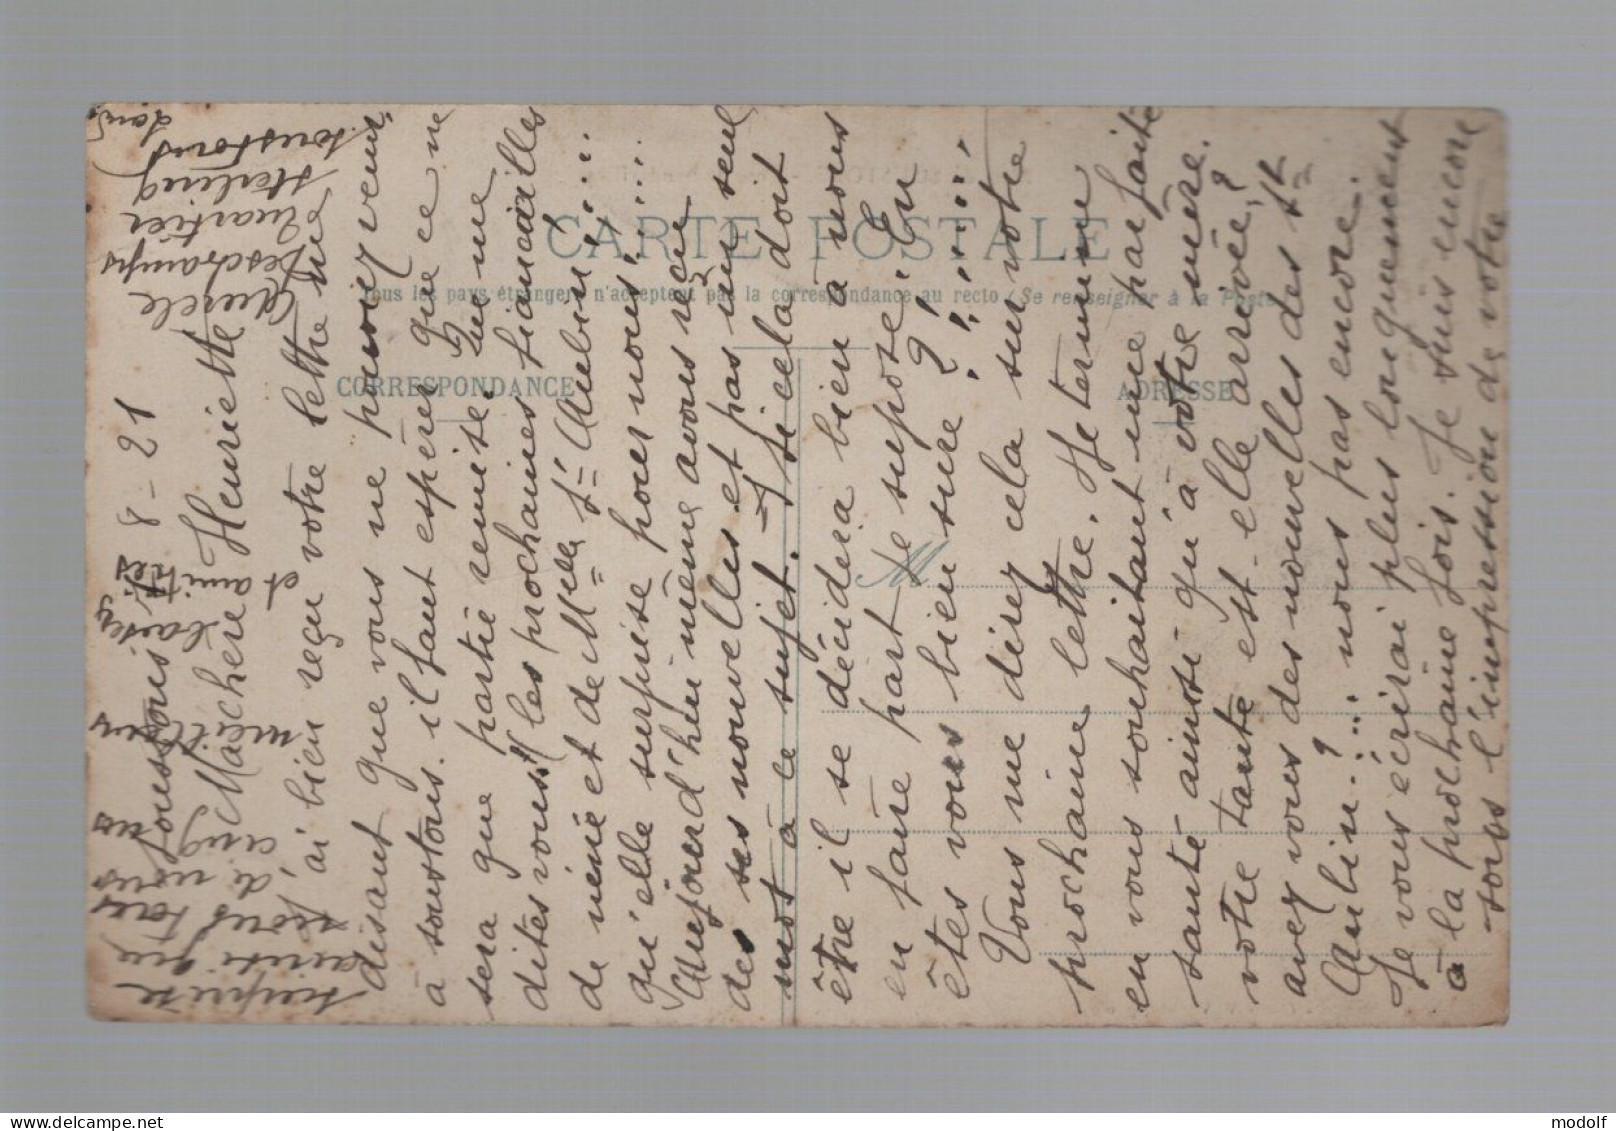 CARTE POSTALE
Tous les pays étrangers n'acceptent pas la correspondance au recto (Se renseigner à la Poste)
CORRESPONDANCE
ADRESSE
M
8-21
Ma chère Henriette
j'ai bien reçu votre lettre me
disant que vous ne pouviez venir
à soustons. il faut espérer que ce ne
sera que partie remise. Que me
dites vous!! (les prochaines fiançailles
de                et de Mlle St Aubin!)....
qu'elle surprise pour nous!.....
Aujourd'hui même avons reçu
des ses nouvelles et pas un seul
mot à ce sujet. Si cela doit
être il se décidera bien à nous
en faire part je supose! En
êtes vous bien sure?
Vous me direz cela sur votre
prochaine lettre. Je termine
en vous souhaitant une parfaite
santé ainsi qu'à votre mère.
votre tante est-elle arrivée?
avez vous des nouvelles des St
Aubin?... nous pas encore.
Je vous écrirai plus longuement
à la prochaine fois. Je suis encore
sous l'impression de votre
surprise
ainsi que
tous
de nous
cinq nos
meilleurs
baisers
et amitiés
Deschamps
Quartier
Sterling
soustons